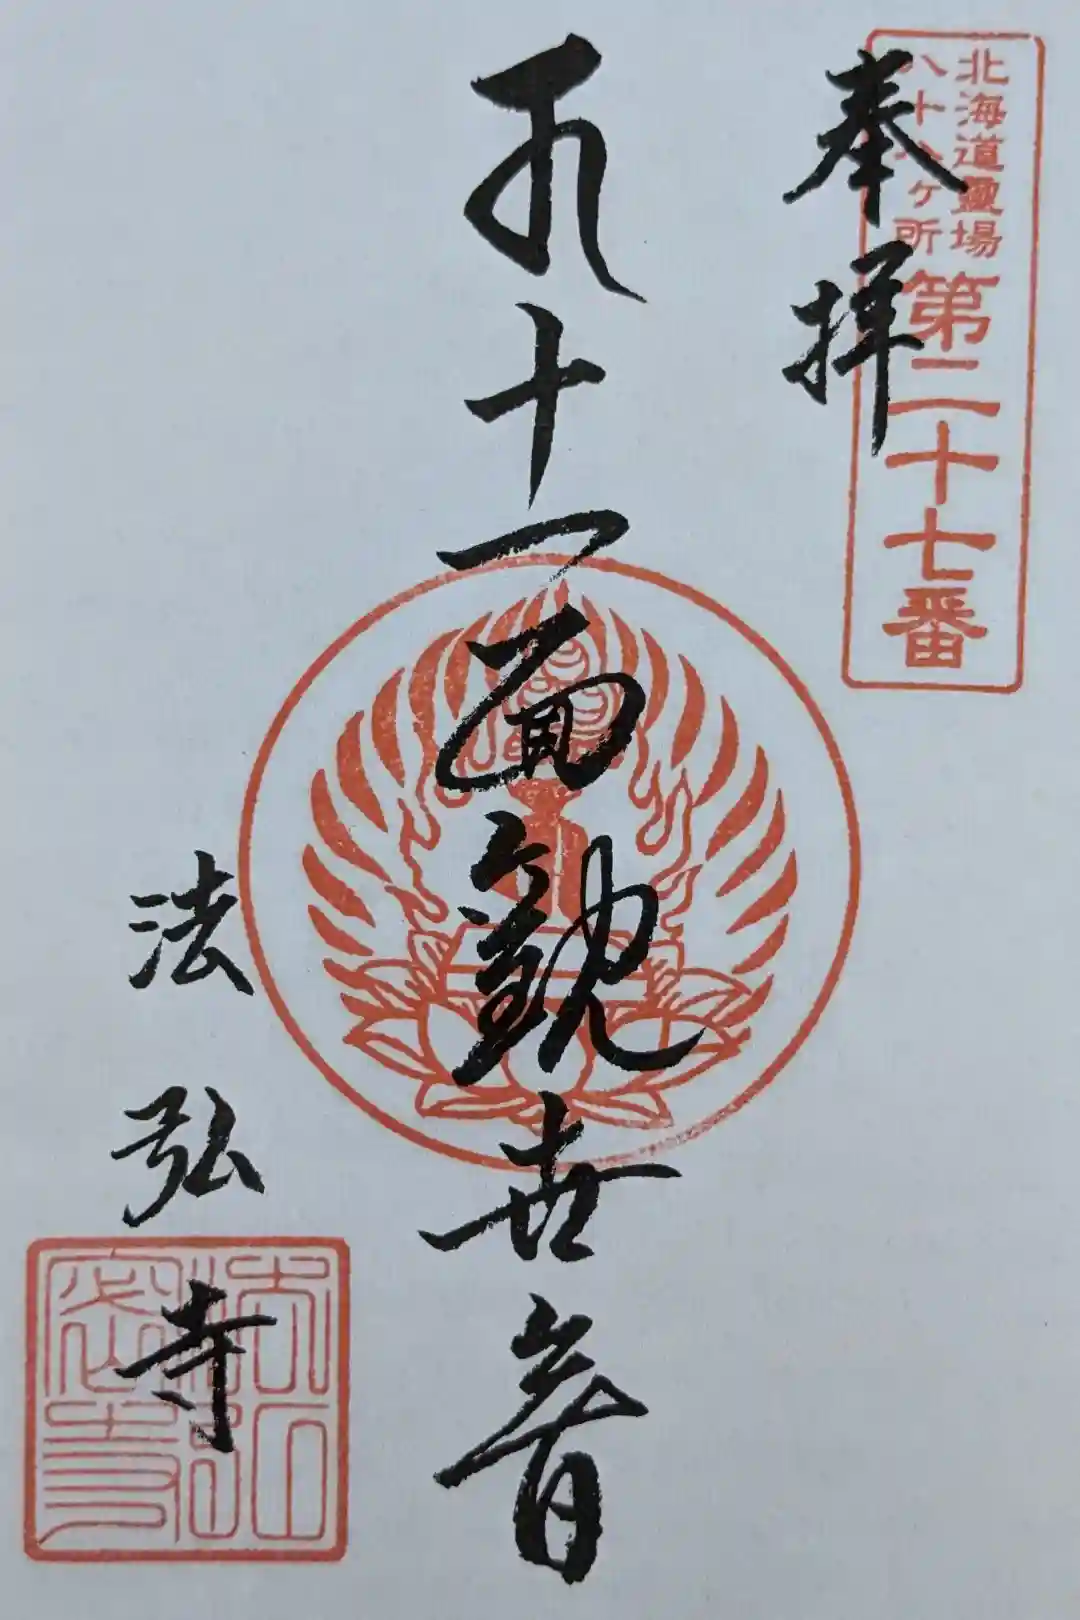 北海道靈場
八十八ヶ所
第二十七番
奉拝
十一面観世音
法弘寺
法弘
密寺